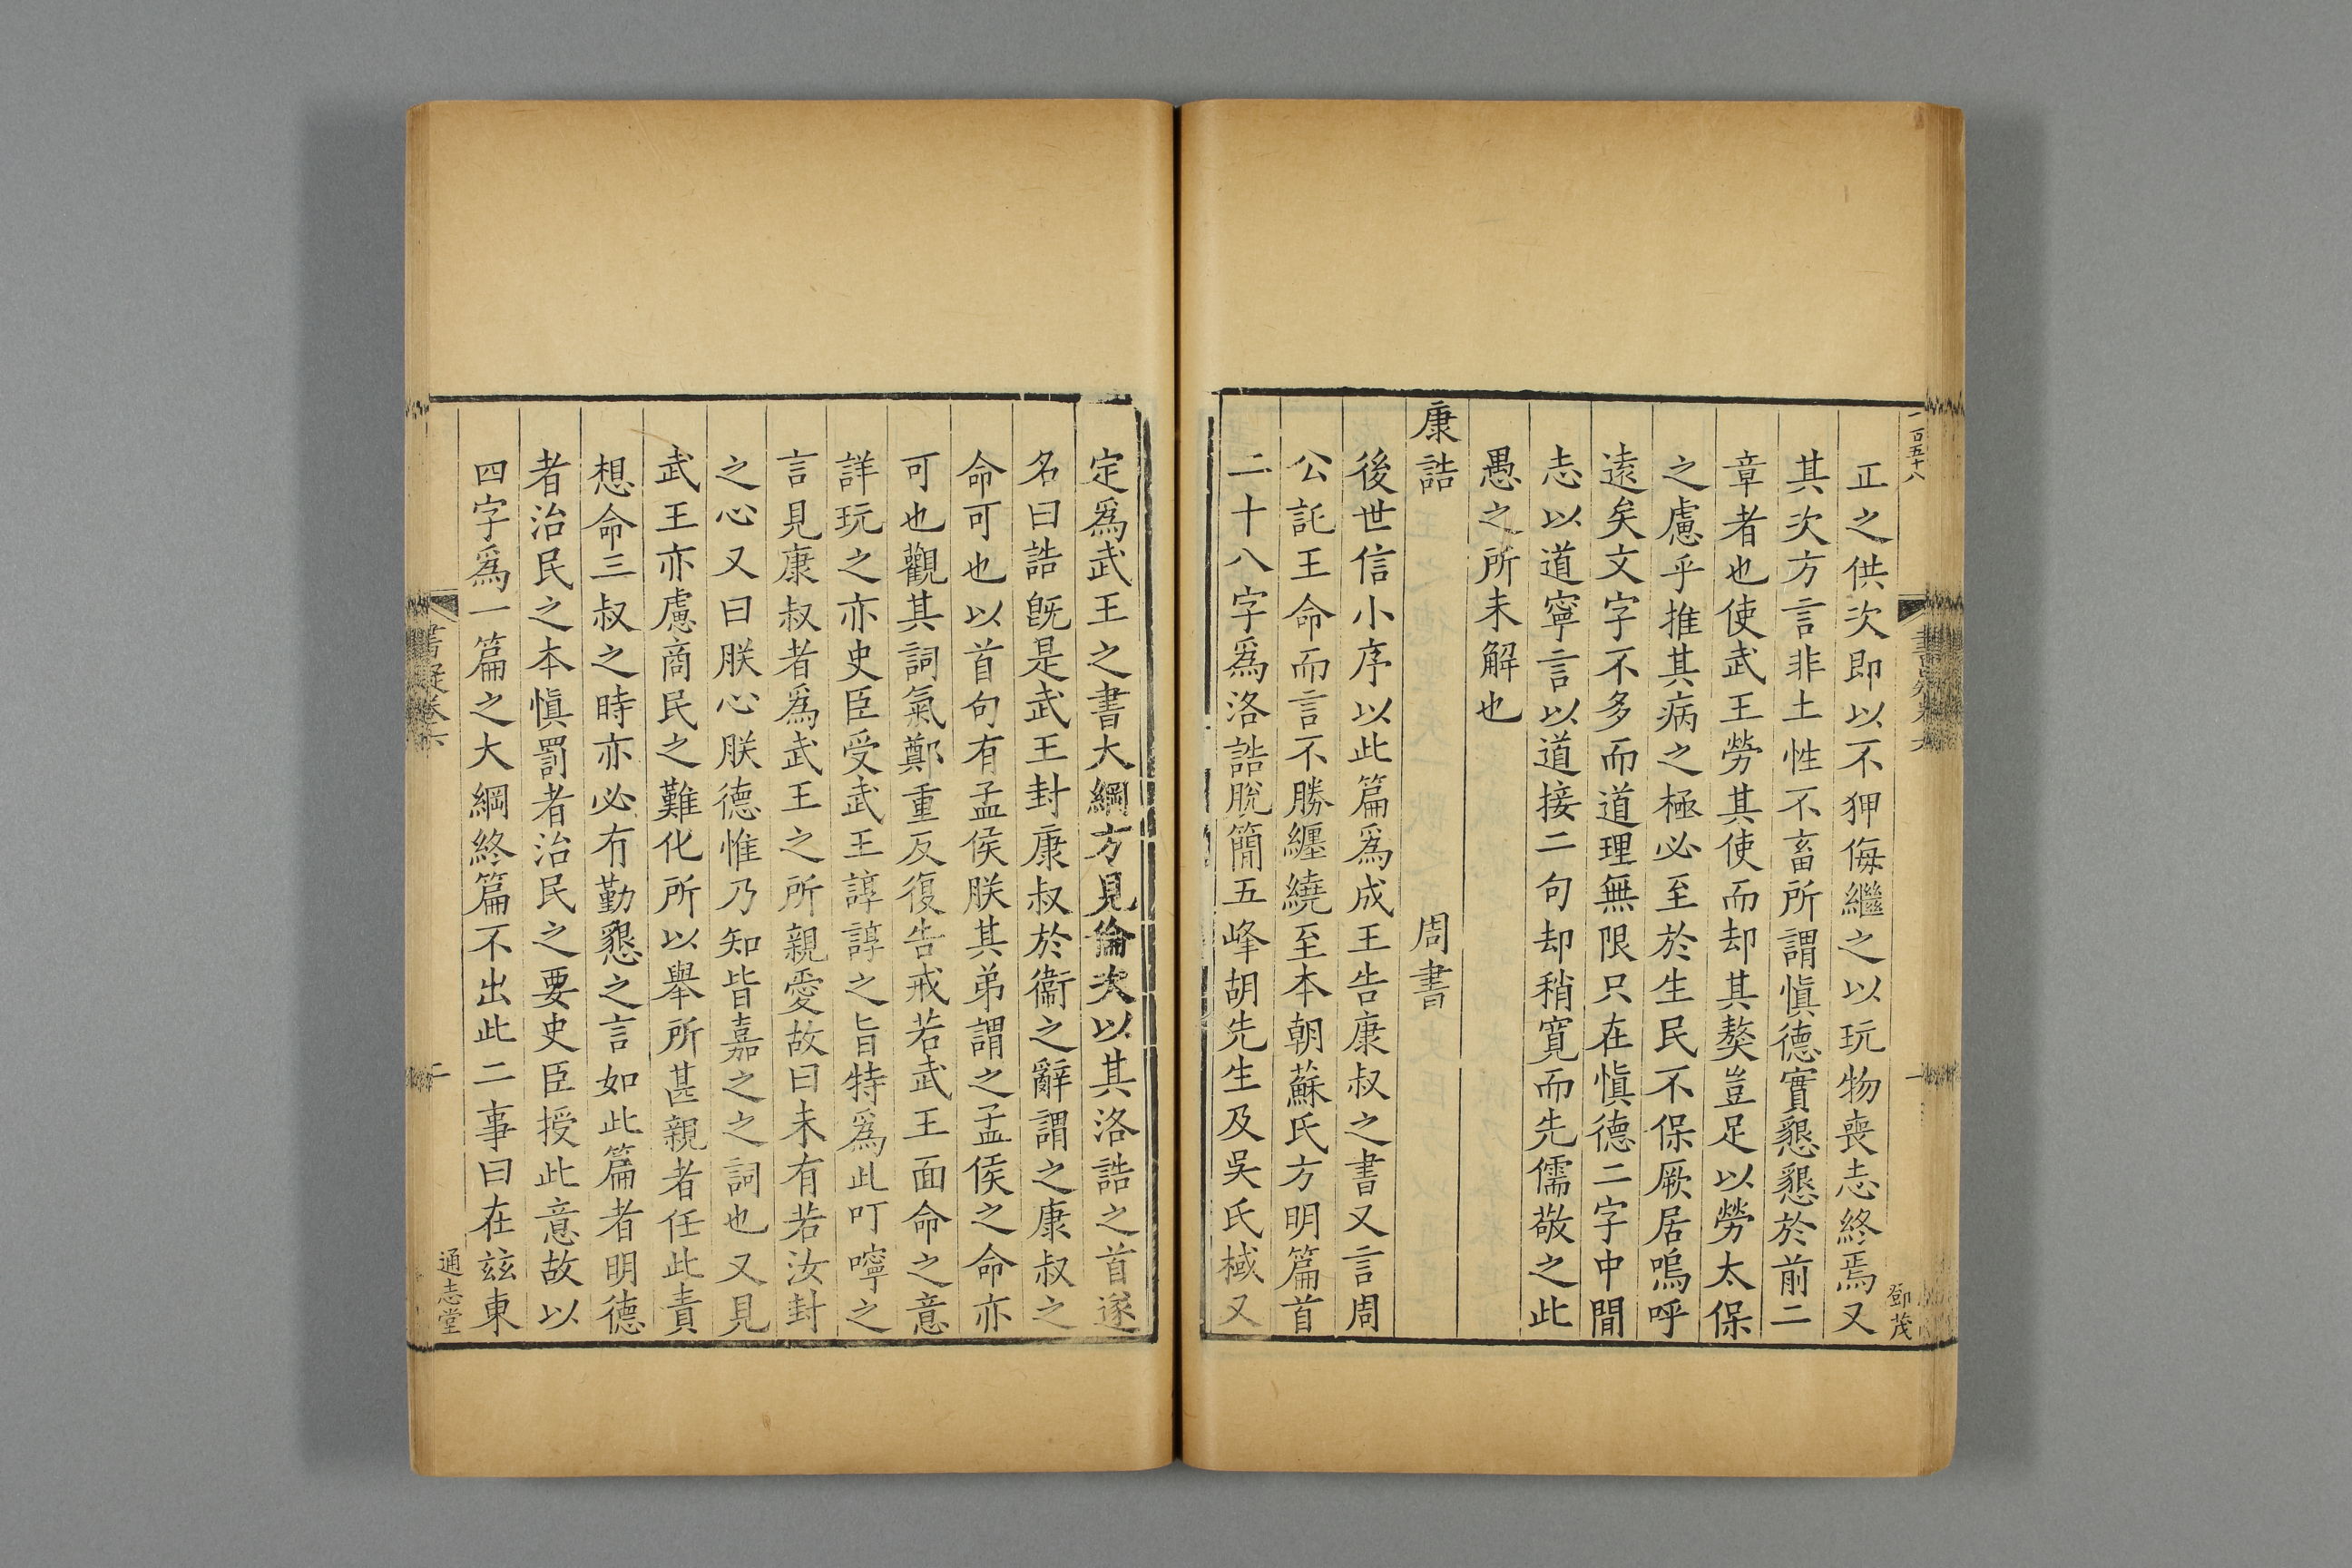 一百五十八
鄧茂
正之供次即以不狎侮繼之以玩物喪志終焉又
其次方言非土性不畜所謂慎德實懇懇於前二
章者也使武王勞其使而却其獒豈足以勞太保
之慮乎推其病之極必至於生民不保厥居嗚呼
遠矣文字不多而道理無限只在慎德二字中間
志以道寧言以道接二句却稍寬而先儒敬之此
愚之所未解也
康誥 周書
後世信小序以此篇爲成王告康叔之書又言周
公託王命而言不勝纏繞至本朝蘇氏方明篇首
二十八字爲洛誥脫簡五峰胡先生及吳氏棫又
定爲武王之書大綱方見倫次以其洛誥之首遂
名曰誥旣是武王封康叔於衞之辭謂之康叔之
命可也以首句有孟侯朕其弟謂之孟侯之命亦
可也觀其詞氣鄭重反復告戒若武王面命之意
詳玩之亦史臣受武王諄諄之旨特爲此叮嚀之
言見康叔者爲武王之所親愛故曰未有若汝封
之心又曰朕心朕德惟乃知皆嘉之之詞也又見
武王亦慮商民之難化所以舉所甚親者任此責
想命三叔之時亦必有勤懇之言如此篇者明德
者治民之本慎罰者治民之要史臣授此意故以
四字爲一篇之大綱終篇不出此二事曰在玆東
書疑卷六
二
通志堂